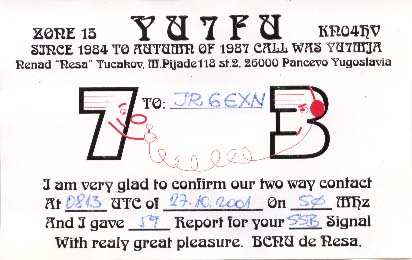 ZONE 15 YU7FU KN04HV
SINCE 1984 TO AUTUMN OF 1987 CALL WAS YU7MJA
Nenad "Nesa" Tucakov, M.Pijade 118 st.2, 26000 Pancevo Yugoslavia
73
TO: JR6EXN
I am very glad to confirm our two way contact
At 0813 UTC of 27.10.2001 On 50 Mhz
And I gave 59 Report for your SSB Signal
With realy great pleasure. BCNU de Nesa.